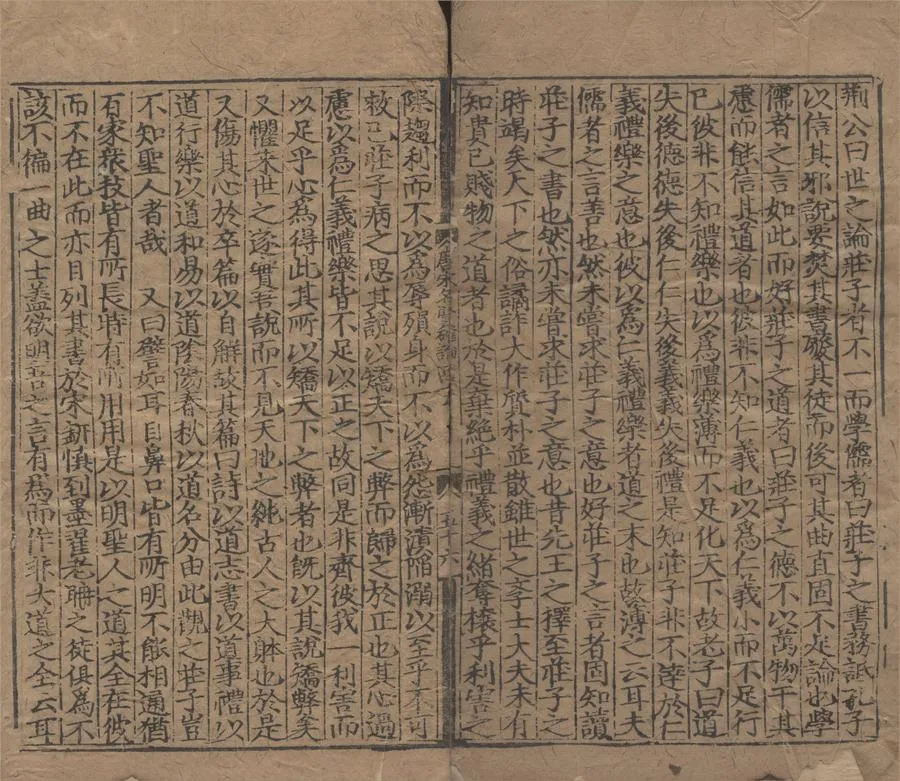 荆公曰世之論莊子者不一而學儒者曰莊子之書務詆孔子
以信其邪說要焚其書廢其徒而後可其曲直固不足論也學
儒者之言如此而好莊子之道者曰莊子之德不以萬物干其
慮而能信其道者也彼非不知仁義也以爲仁義小而不足行
已彼非不知禮樂也以爲禮樂薄而不足化天下故老子曰道
失後德德失後仁仁失後義義失後禮是知莊子非不逹於仁
義禮樂之意也彼以爲仁義禮樂者道之末也故薄之云耳夫
儒者之言善也然未嘗求莊子之意也好莊子之言者固知讀
莊子之書也然亦未嘗求莊子之意也昔先王之擇至莊子之
時竭矣天下之俗譎詐大作質朴並散雖世之学士大夫未有
知貴已賤物之道者也於是棄絶乎禮義之緒奪攘乎利害之
五十六
際趨利而不以爲辱殞身而不以爲怨漸漬陷溺以至乎不可
救已莊子病之思其說以矯天下之弊而歸之於正也其心過
慮以爲仁義禮樂皆不足以正之故同是非齊彼我一利害而
以足乎心爲得此其所以矯天下之弊者也旣以其說矯弊矣
又懼來世之遂實吾說而不見天地之純古人之大躰也於是
又傷其心於卒篇以自解故其篇曰詩以道志書以道事禮以
道行樂以道和易以道陰陽春秋以道名分由此觀之莊子豈
不知聖人者哉　又曰譬如耳目鼻口皆有所明不能相通猶
百家衆技皆有所長時有所用用是以明聖人之道其全在彼
而不在此而亦自列其書於宋鈃愼到墨翟老聃之徒俱爲不
該不徧一曲之士盖欲明吾之言有爲而作非大道之全云耳